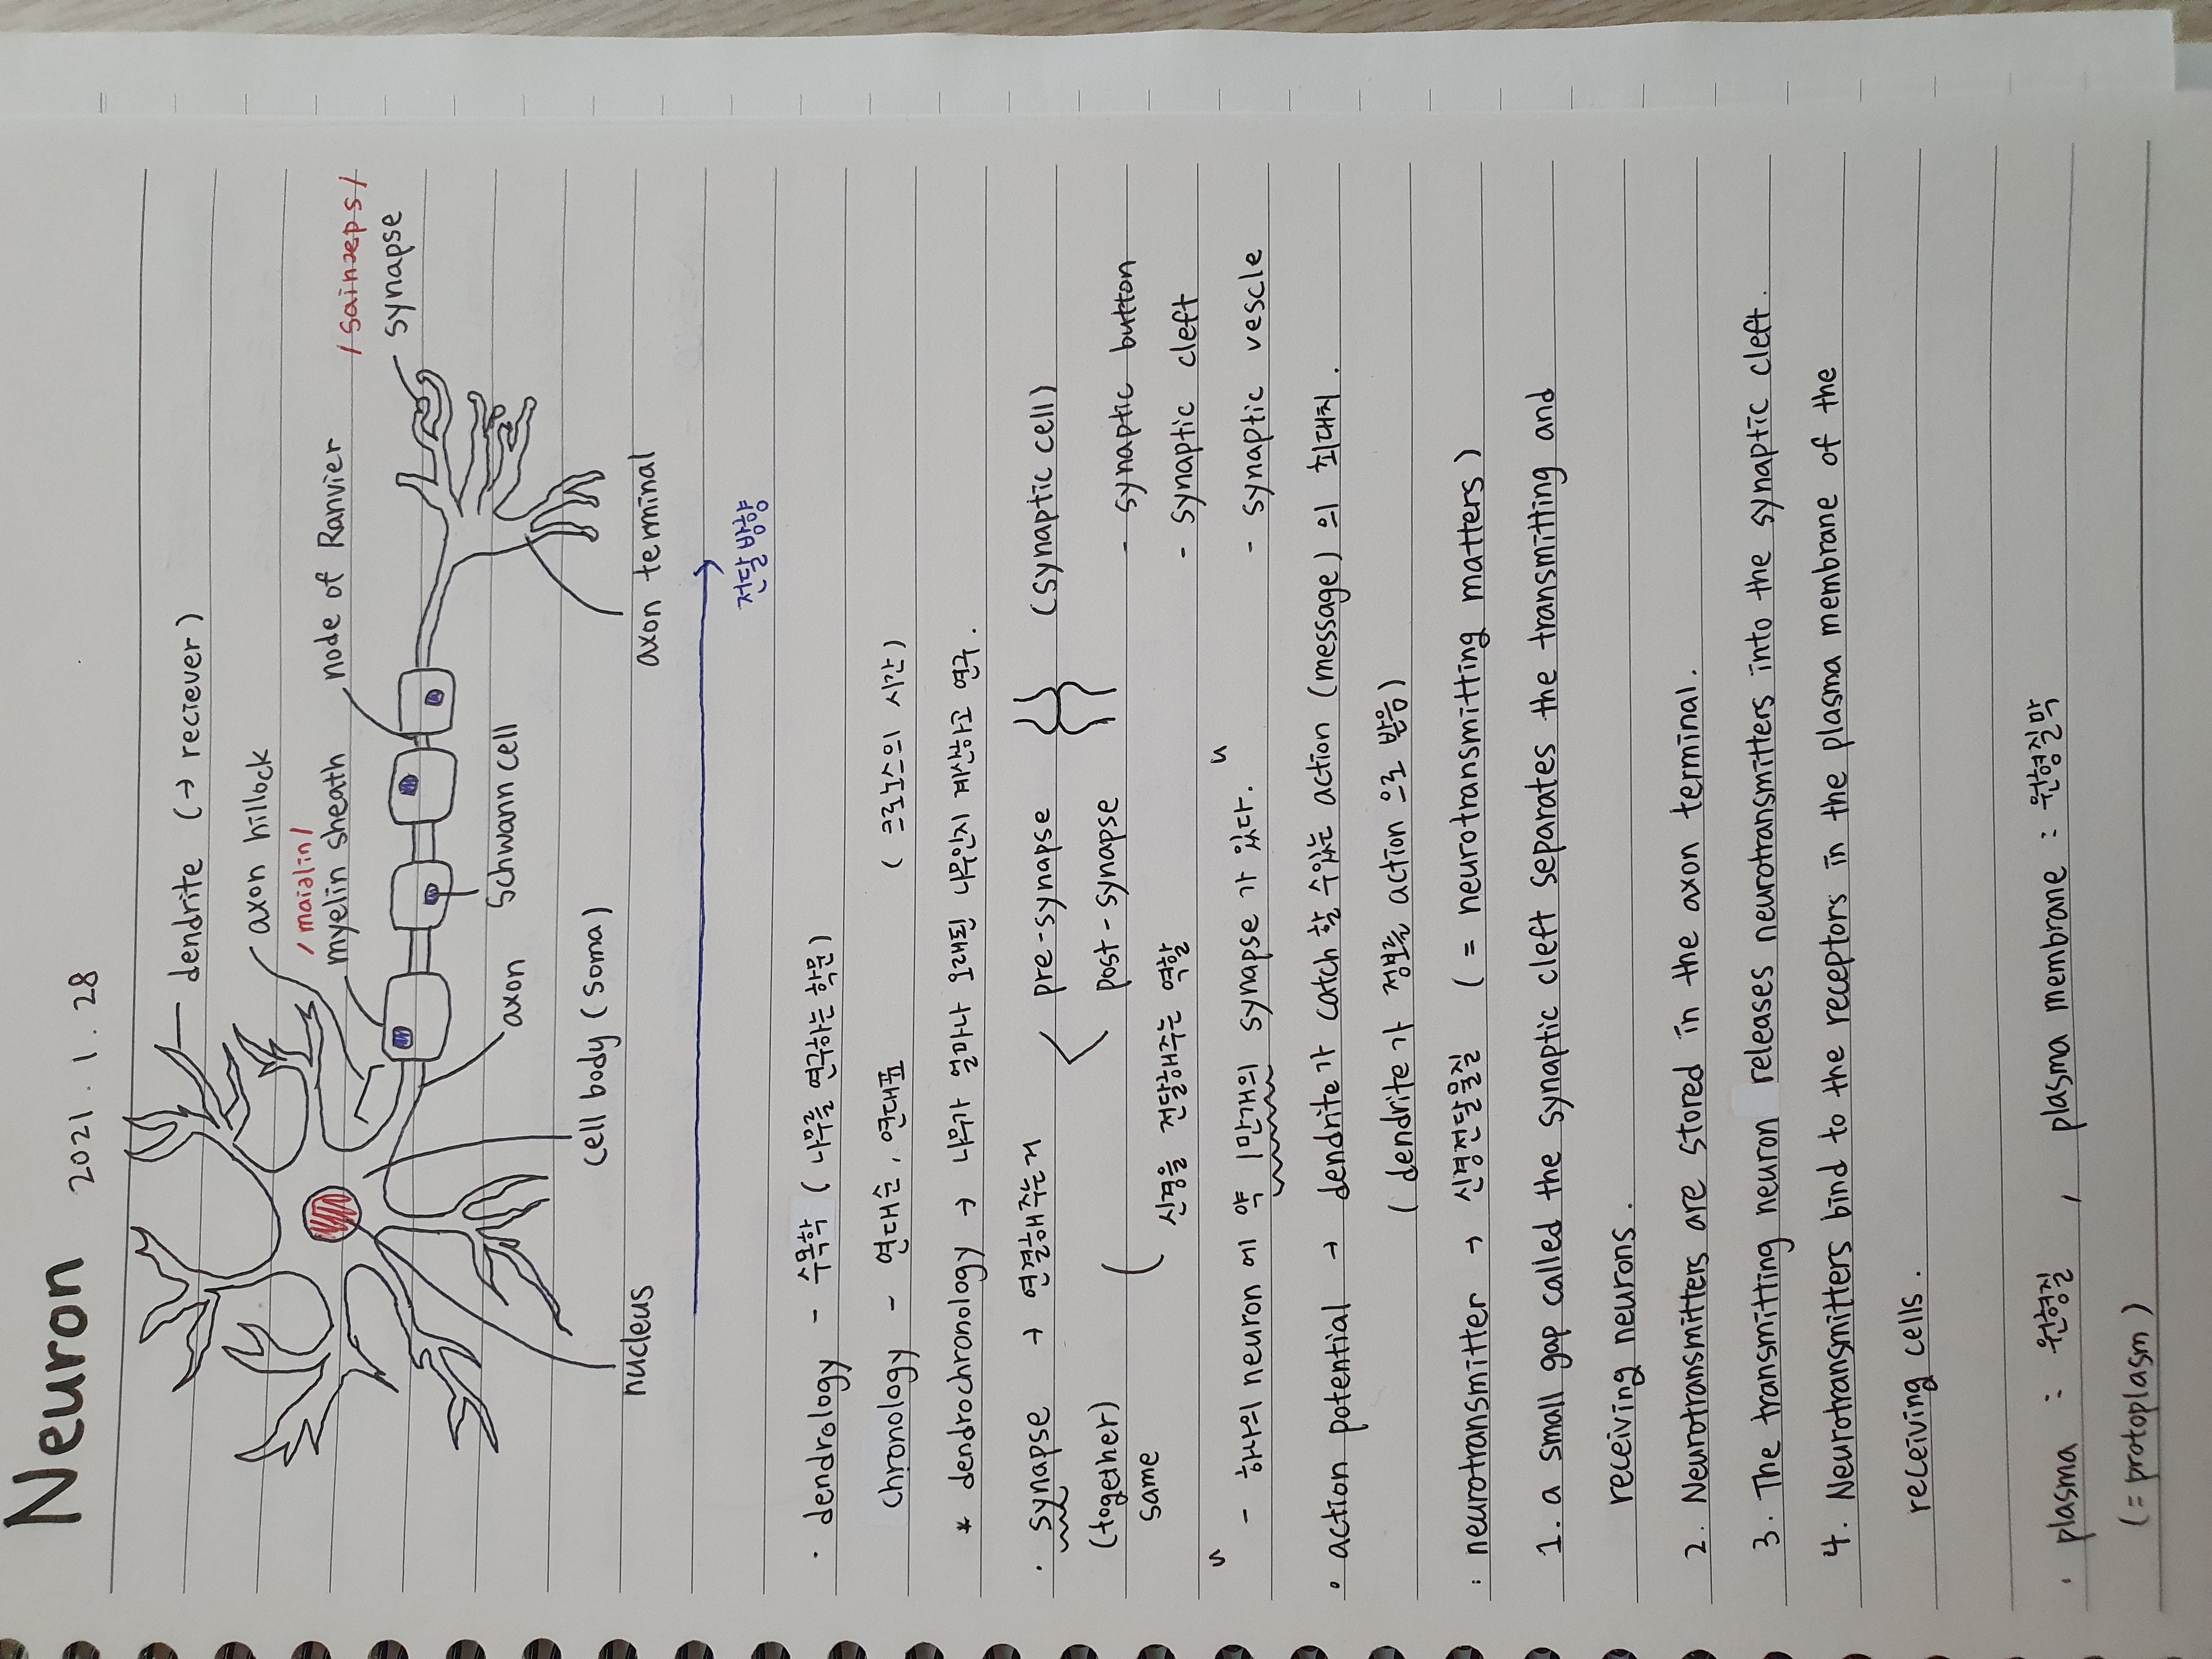 Neuron 2021. 1. 28
dendrite (→ reciever)
axon hillock
/maiəlin/
myelin sheath
node of Ranvier
/sainæps/
synapse
Schwann cell
axon
axon terminal
cell body (soma)
nucleus
전달 방향
· dendrology - 수목학 ( 나무를 연구하는 학문)
chronology - 연대순, 연대표 ( 크로노스의 시간)
* dendrochronology → 나무가 얼마나 오래된 나무인지 계산하고 연구.
· synapse → 연결해주는거 pre-synapse (synaptic cell)
(together) post-synapse - synaptic button
same 신경을 전달해주는 역할 - synaptic cleft
" - 하나의 neuron 에 약 1만개의 synapse 가 있다. " - synaptic vescle
· action potential → dendrite가 catch 할 수있는 action (message) 의 최대치.
( dendrite가 정보를 action 으로 받음)
: neurotransmitter → 신경전달물질 ( = neurotransmitting matters)
1. a small gap called the synaptic cleft separates the transmitting and
receiving neurons.
2. Neurotransmitters are stored in the axon terminal.
3. The transmitting neuron releases neurotransmitters into the synaptic cleft.
4. Neurotransmitters bind to the receptors in the plasma membrane of the
receiving cells.
· plasma : 원형질 , plasma membrane : 원형질막
(= protoplasm)